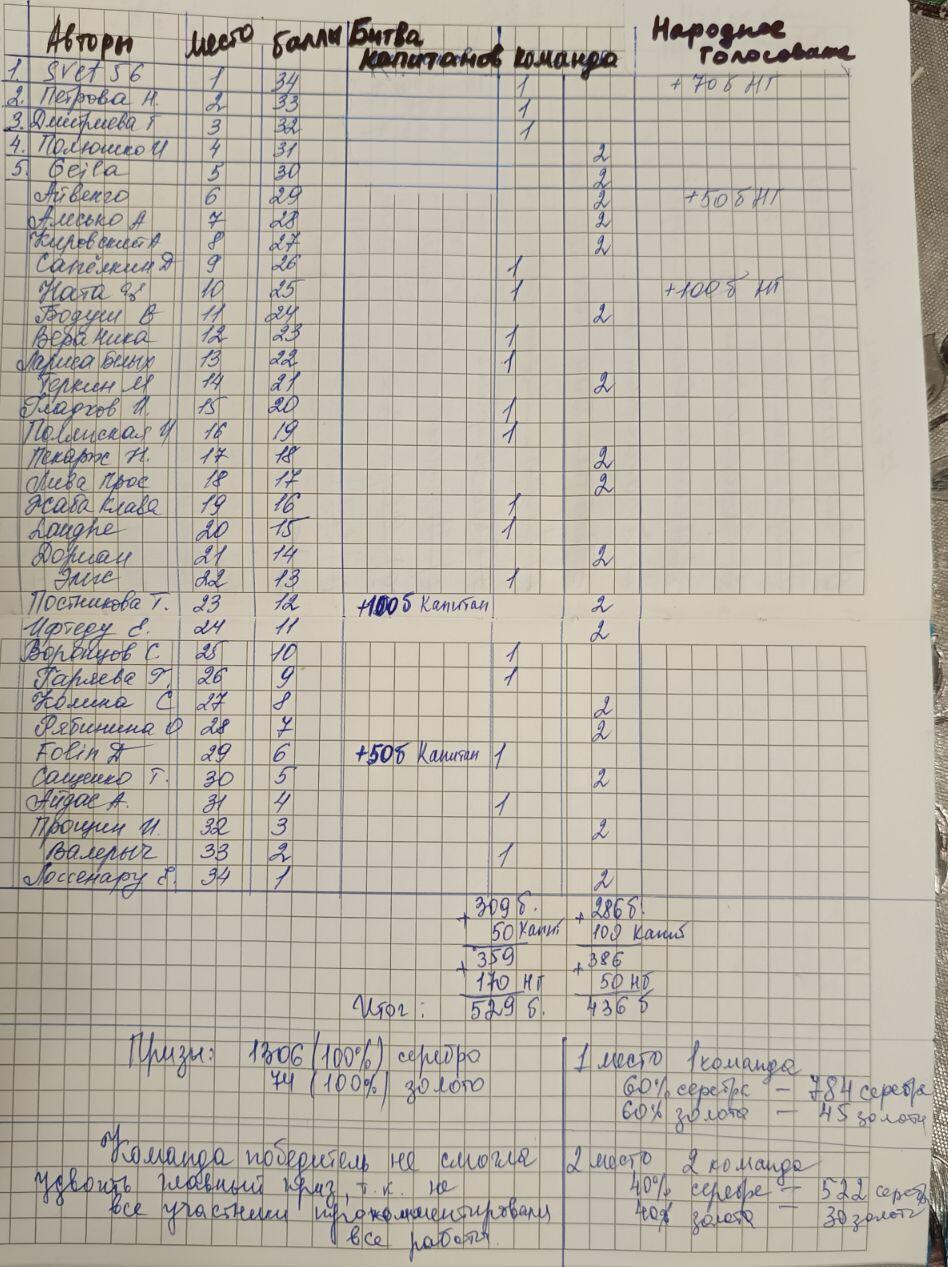 Авторы Место баллы Битва капитанов команда Народное голосование
1. Svet 56 1 34 1 +70б НГ
2. Петрова Н. 2 33 1
3. Дмитриева Т 3 32 1
4. Полюшко И 4 31 2
5. Geila 5 30 2
Айвенго 6 29 2 +50б НГ
Алесько А 7 28 2
Кировский А 8 27 2
Сапёлкин Д 9 26 1
Ната 10 25 1 +100б НГ
Бодуш В 11 24 2
Вера Ника 12 23 1
Лариса Белых 13 22 1
Теркин М 14 21 2
Гладков И. 15 20 1
Полянская И 16 19 1
Пекарж Н. 17 18 2
Лива Прос 18 17 2
Жаба Клава 19 16 1
20 15 1
Дориан 21 14 2
Элис 22 13 1
Постникова Т. 23 12 +100б Капитан 2
Ифтеду Е. 24 11 2
Воронцов С. 25 10 1
Гаряева Г. 26 9 1
Колина С 27 8 2
Рябинина О 28 7 2
Folin D 29 6 +50б Капитан 1
Сащенко Т. 30 5 2
Айдас А. 31 4 1
Прощин И. 32 3 2
Валерыч 33 2 1
Лоссенару Е. 34 1 2
+ 309б. + 286б.
50 Капит 100 Капит
+ 359 + 386
170 НГ 50 НГ
Итог: 529 б. 436 б
Призы: 1306 (100%) серебро
74 (100%) золото
1 место 1 команда
60% серебра – 784 серебра
60% золота – 45 золота
Команда победитель не смогла
удвоить главный приз, т.к. не
все участники прокомментировали
все работы.
2 место 2 команда
40% серебр – 522 сереб
40% золота – 30 золота